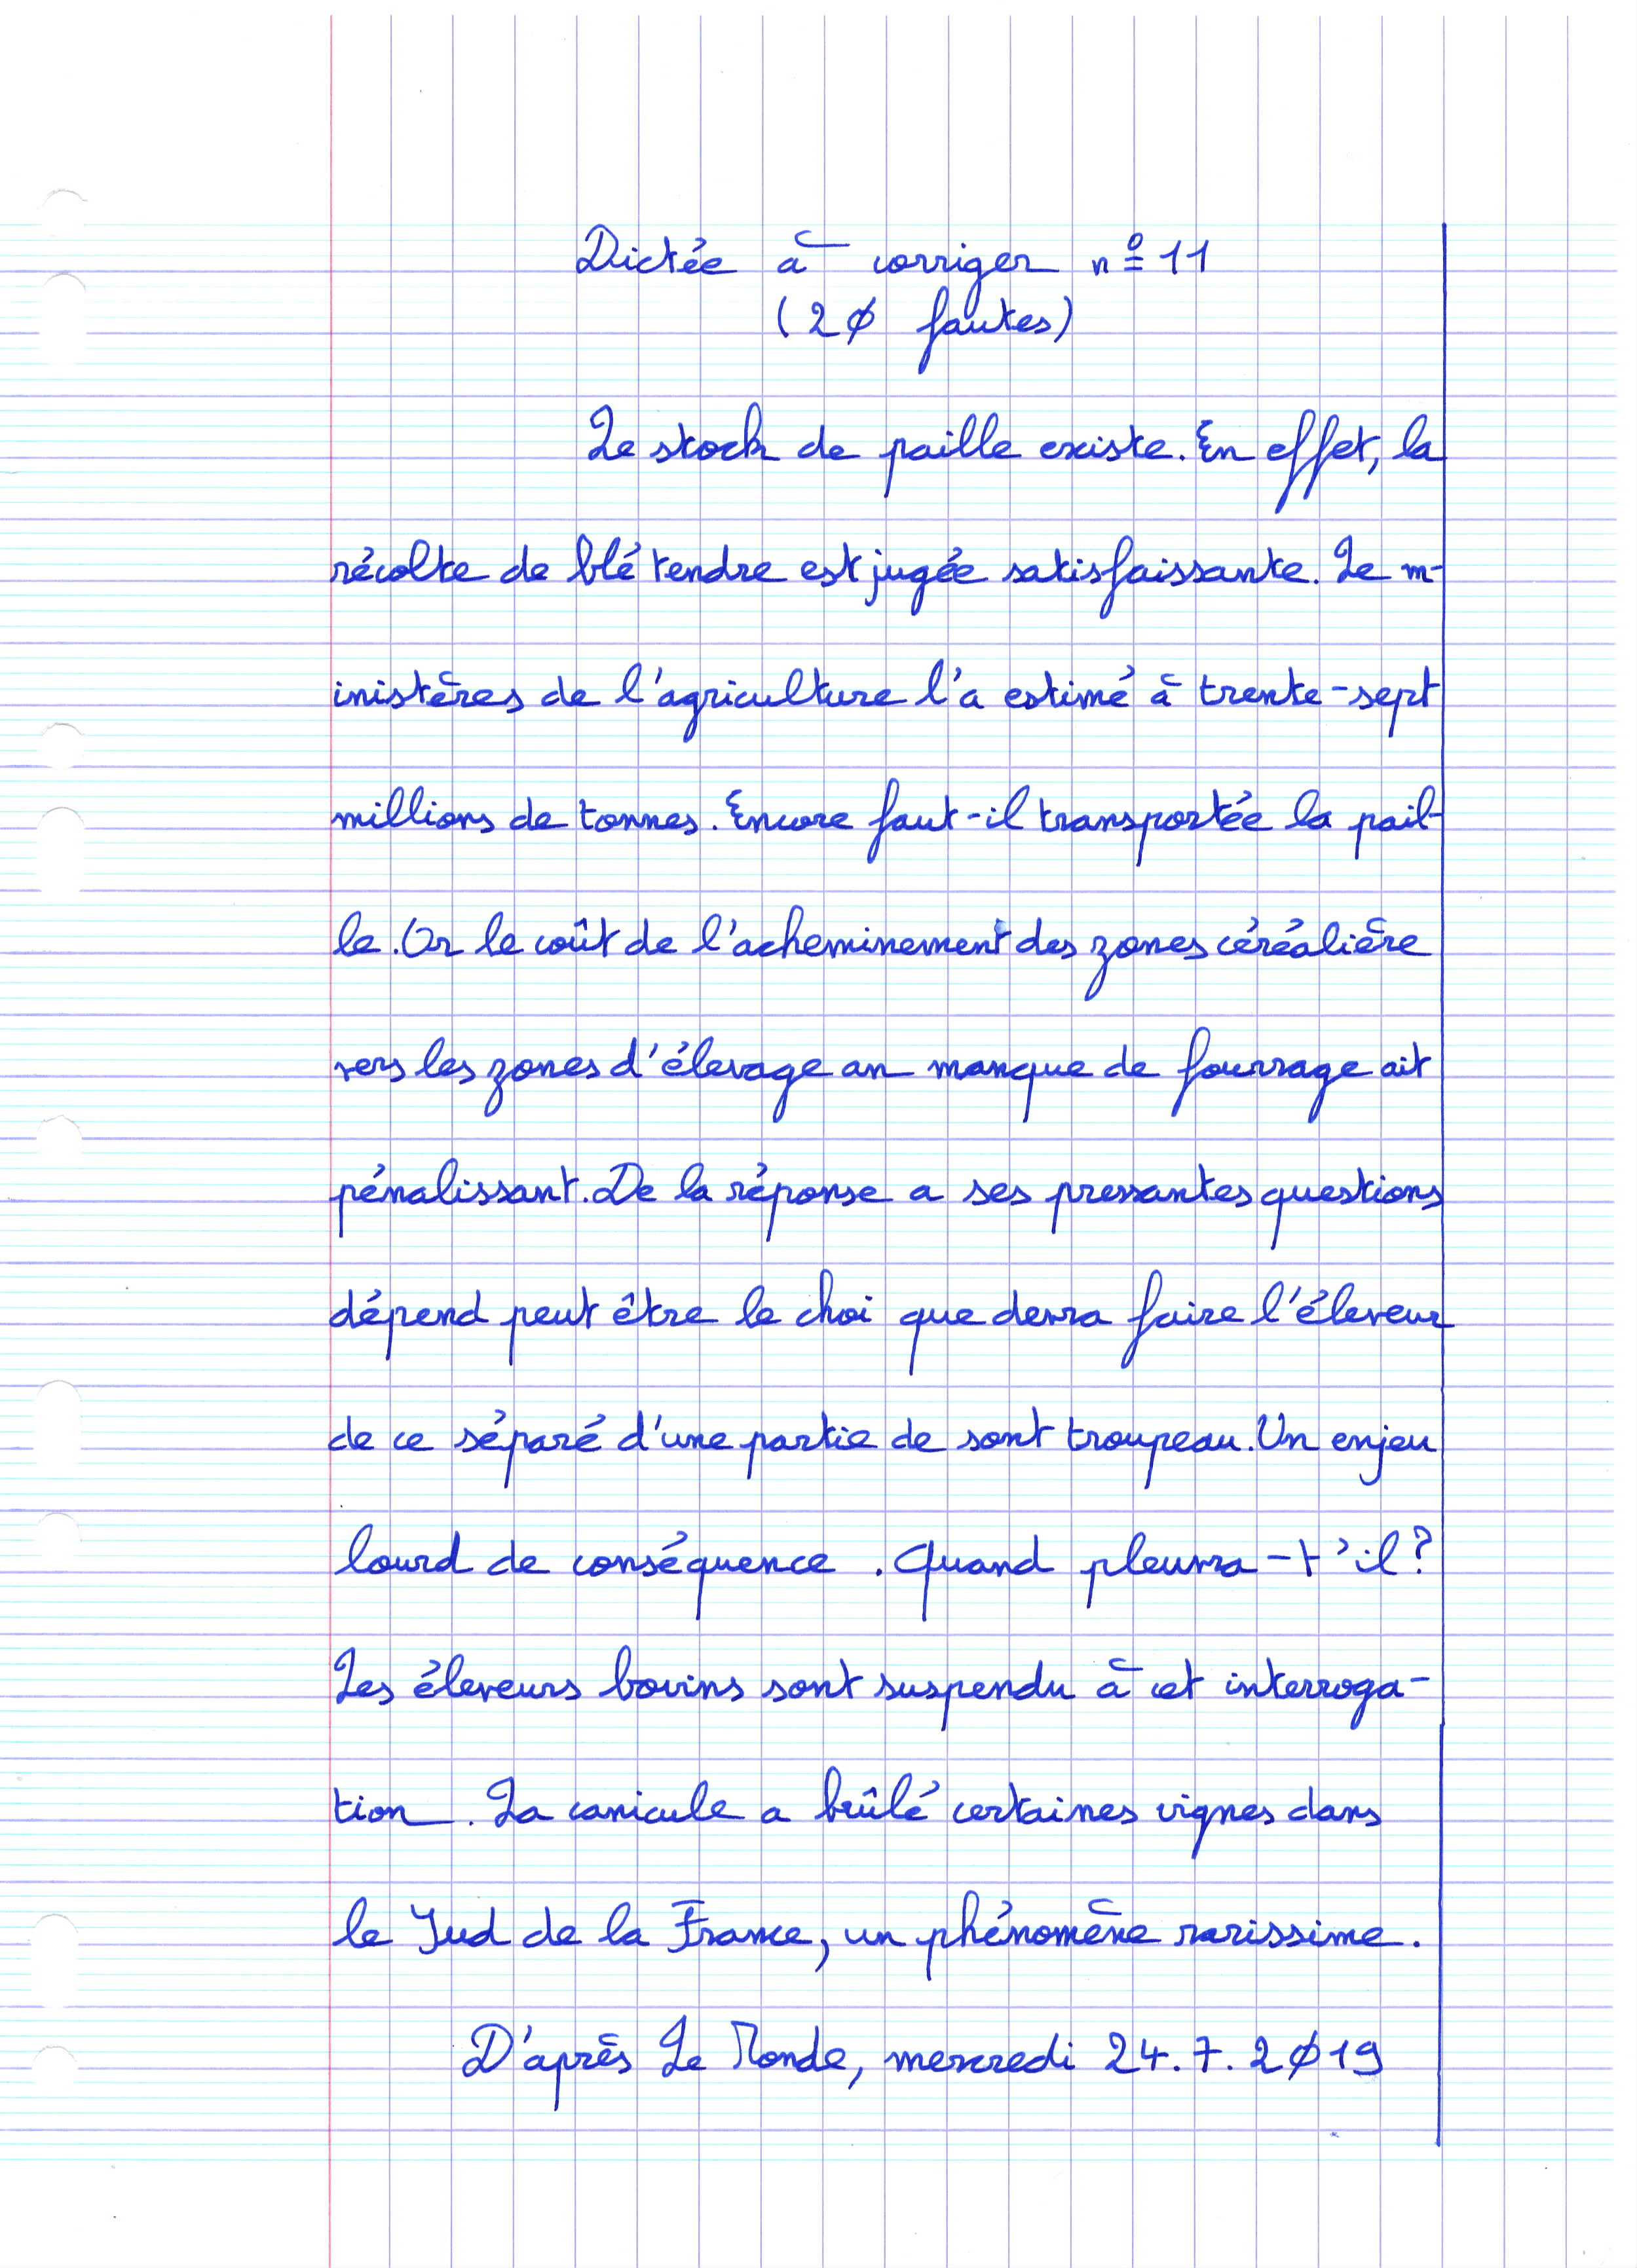 Dictée à corriger n° 11
(20 fautes)
Le stock de paille existe. En effet, la
récolte de blé tendre est jugée satisfaissante. Le m-
inistères de l'agriculture l'a estimé à trente-sept
millions de tonnes. Encore faut-il transportée la pail-
le. Or le coût de l'acheminement des zones céréalière
vers les zones d'élevage an manque de fourrage ait
pénalissant. De la réponse a ses pressantes questions
dépend peut être le choi que devra faire l'éleveur
de ce séparé d'une partie de sont troupeau. Un enjeu
lourd de conséquence. Quand pleuvra-t'il?
Les éleveurs bovins sont suspendu à cet interroga-
tion. La canicule a brûlé certaines vignes dans
le Sud de la France, un phénomène rarissime.
D'après Le Monde, mercredi 24.7.2019